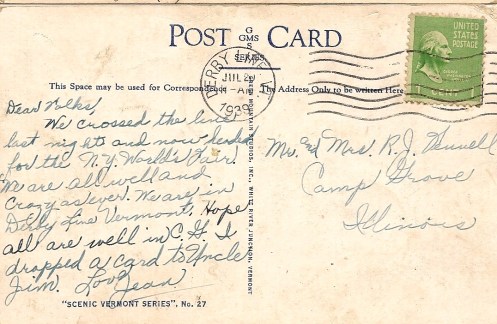 POST CARD
G
GMS
S
SERIES
DERBY LINE, VT.
JUL 2
-AM
1939
UNITED
STATES
POSTAGE
1 CENT 1
This Space may be used for Correspondence
The Address Only to be written Here
Dear Folks,
We crossed the line
last night and now headed
for the N.Y. World's Fair.
We are all well and
crazy as ever. We are in
Derby Line Vermont. Hope
all are well in C.G. I
dropped a card to Uncle
Jim. Love
Jean
Mr. and Mrs. R. J.
Camp Grove
Illinois
GREEN MOUNTAIN STUDIOS, INC., WHITE RIVER JUNCTION, VERMONT
"SCENIC VERMONT SERIES", No. 27